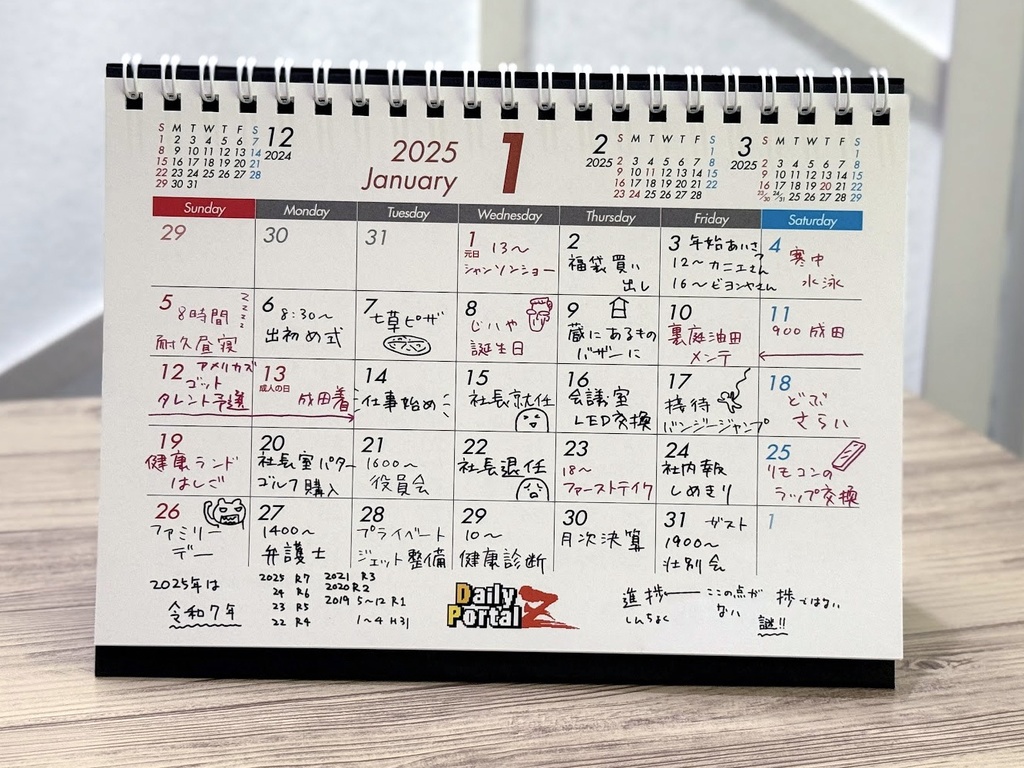 S M T W T F S
1 2 3 4 5 6 7
8 9 10 11 12 13 14
15 16 17 18 19 20 21
22 23 24 25 26 27 28
29 30 31
12
2024
2025
January
1
2
2025
S M T W T F S
1
2 3 4 5 6 7 8
9 10 11 12 13 14 15
16 17 18 19 20 21 22
23 24 25 26 27 28
3
2025
S M T W T F S
1
2 3 4 5 6 7 8
9 10 11 12 13 14 15
16 17 18 19 20 21 22
23/30 24/31 25 26 27 28 29
Sunday Monday Tuesday Wednesday Thursday Friday Saturday
29
30
31
1
元日
13〜
シャンソンショー
2
福袋買い
出し
3 年始あいさつ
12〜カニエさん
16〜ビヨンセさん
4
寒中
水泳
5 8時間
耐久昼寝
zzzz
6 8:30〜
出初め式
7
七草ピザ
8
じいや
誕生日
9
蔵にあるもの
バザーに
10
裏庭油田
メンテ
11
900 成田
12 アメリカズ
ゴット
タレント予選
13
成人の日
成田着
14
仕事始め
15
社長就任
16
会議室
LED交換
17
接待
バンジージャンプ
18
どぶ
さらい
19
健康ランド
はしご
20
社長室パター
ゴルフ購入
21
1600〜
役員会
22
社長退任
23
18〜
ファーストテイク
24
社内報
しめきり
25
リモコンの
ラップ交換
26
ファミリー
デー
27
1400〜
弁護士
28
プライベート
ジェット整備
29
10〜
健康診断
30
月次決算
31 ゲスト
1900〜
壮別会
1
2025年は
令和7年
2025 R7
24 R6
23 R5
22 R4
2021 R3
2020 R2
2019 5〜12 R1
1〜4 H31
Daily
Portal Z
進捗 ここの点が 捗ではない
しんちょく ない
謎!!